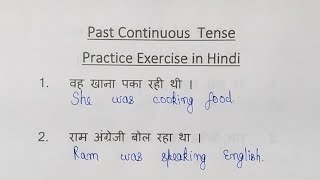 Past Continuous Tense
Practice Exercise in Hindi
1. वह खाना पका रही थी ।
She was cooking food.
2. राम अंग्रेजी बोल रहा था ।
Ram was speaking English.